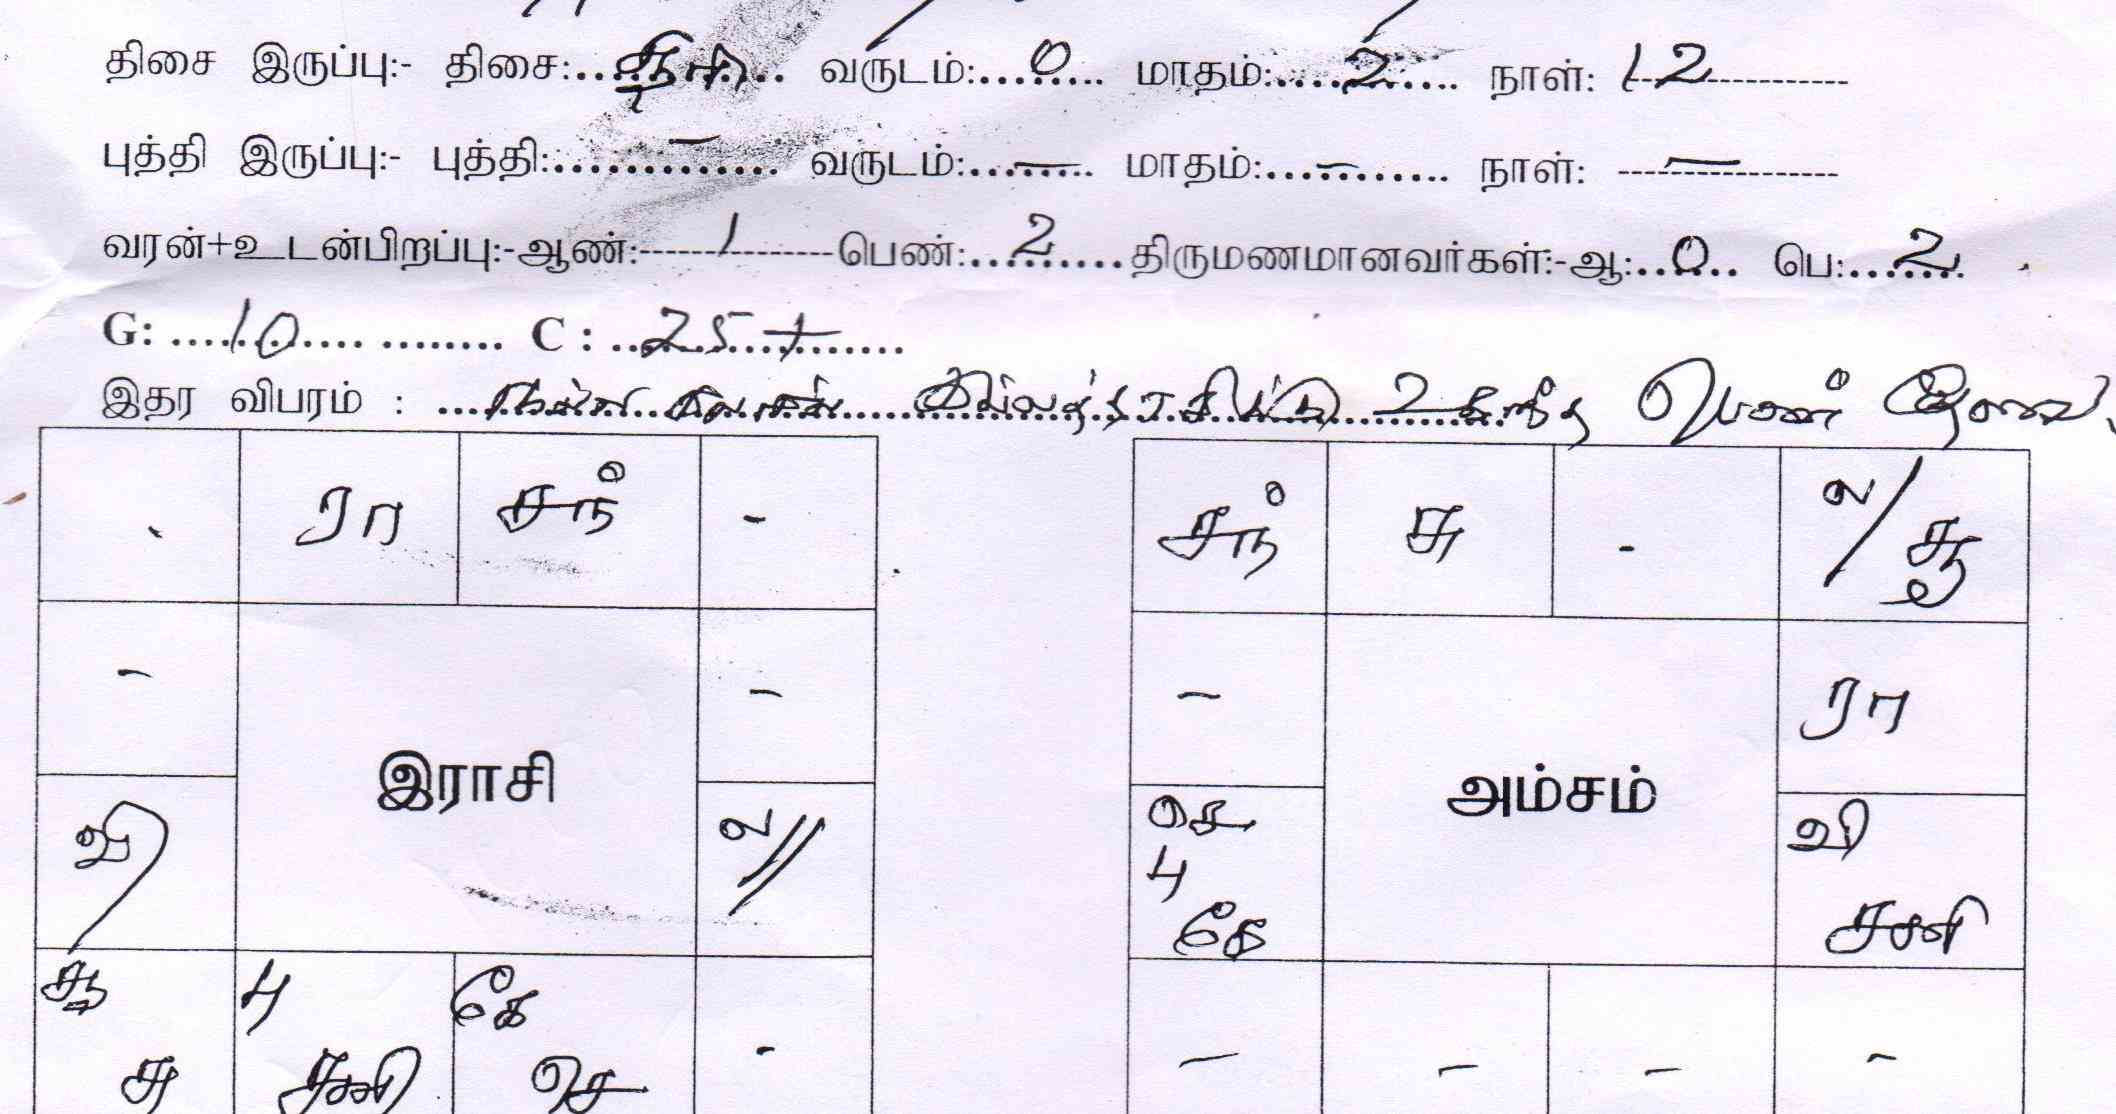 திசை இருப்பு:- திசை:............ வருடம்:...0.... மாதம்:....2.... நாள்: 12
புத்தி இருப்பு:- புத்தி:.....-..... வருடம்:...-... மாதம்:...-..... நாள்: -
வரன்+உடன்பிறப்பு:-ஆண்:-----1-----பெண்:...2.....திருமணமானவர்கள்:-ஆ:...0.. பெ:...2...
G: ....10.... ........ C : ...25.......
இதர விபரம் : ... பெண் தேவை
ரா சந் -
- -
இராசி
வி ல//
சூ பு கே -
சு சனி செ
சந் சு - ல/ சூ
- ரா
அம்சம்
செ பு கே வி சனி
- - - -